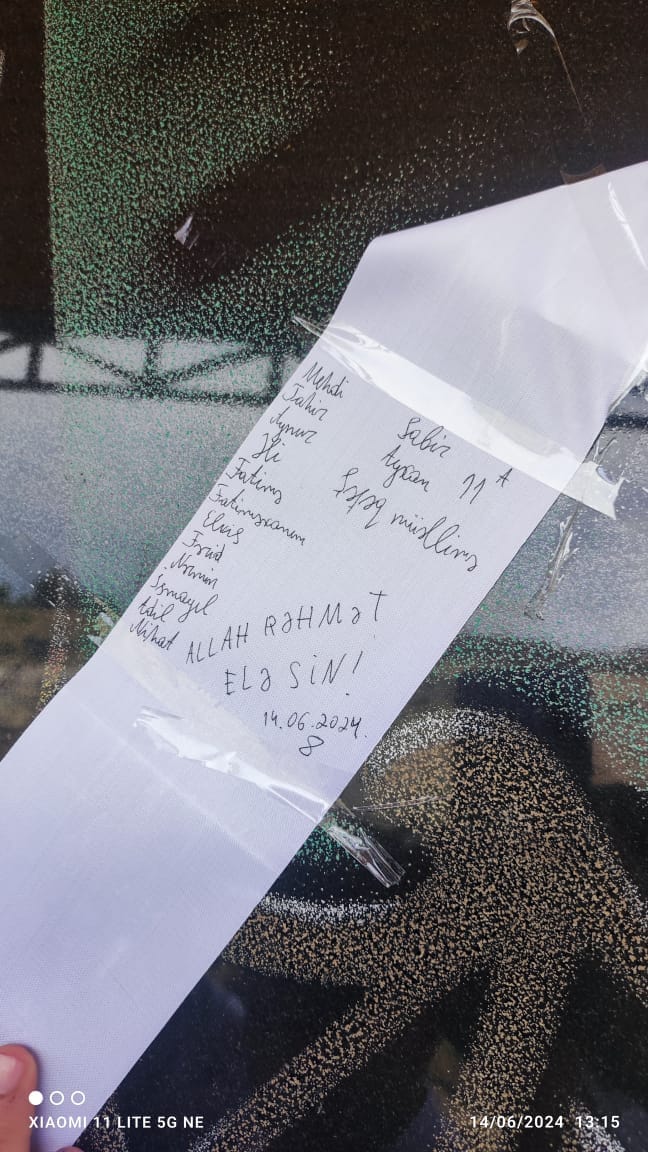 Mehdi
Tahir
Aynur
Əli
Fatimə
Fatiməxanım
Elvis
Fərid
Nərmin
İsmayıl
Adil
Nihat
Sabir
Ayxan 11 A
Şəfəq müəllimə
ALLAH RƏHMƏT
ELƏSİN!
14.06.2024.
8
XIAOMI 11 LITE 5G NE
14/06/2024 13:15